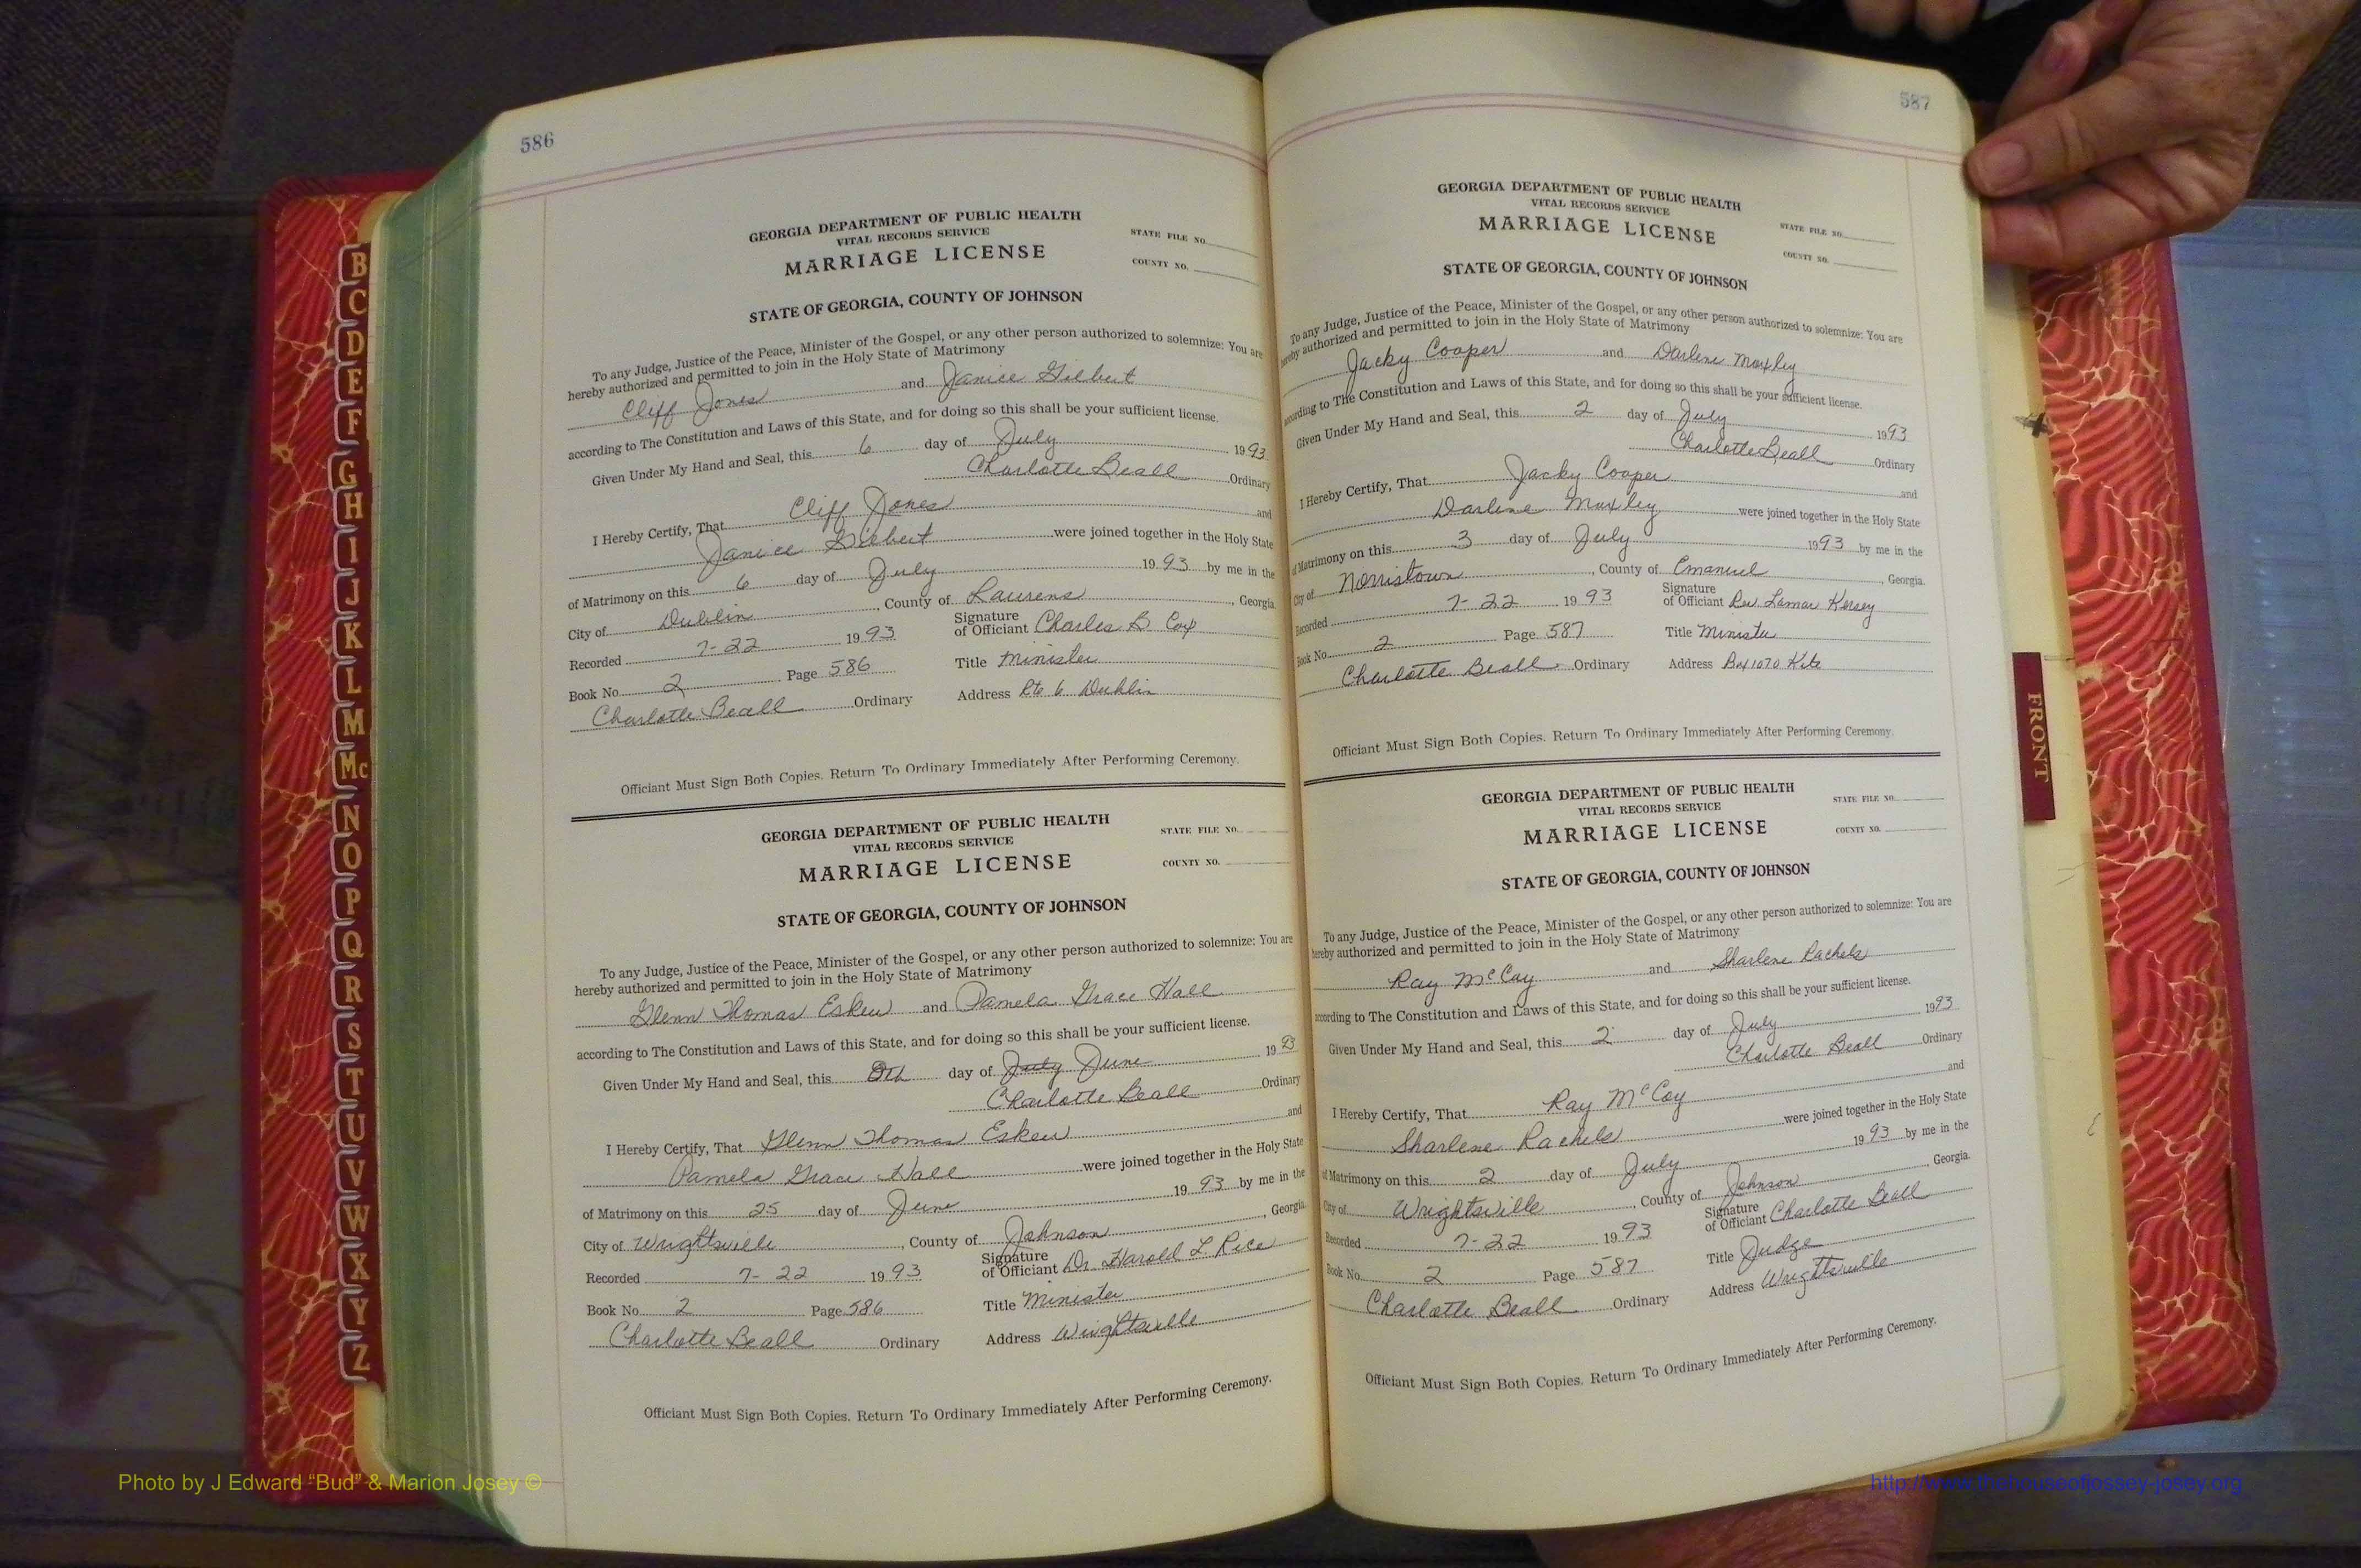 586
GEORGIA DEPARTMENT OF PUBLIC HEALTH
VITAL RECORDS SERVICE
MARRIAGE LICENSE
STATE FILE NO.
COUNTY NO.
STATE OF GEORGIA, COUNTY OF JOHNSON
To any Judge, Justice of the Peace, Minister of the Gospel, or any other person authorized to solemnize: You are
hereby authorized and permitted to join in the Holy State of Matrimony
Cliff Jones and Janice Gilbert
according to The Constitution and Laws of this State, and for doing so this shall be your sufficient license.
Given Under My Hand and Seal, this 6 day of July 1993
Charlotte Beall Ordinary
I Hereby Certify, That Cliff Jones and
Janice Gilbert were joined together in the Holy State
of Matrimony on this 6 day of July 1993 by me in the
City of Dublin, County of Laurens, Georgia
Recorded 7-22 1993 Signature of Officiant Charles B Cox
Book No. 2 Page 586 Title Minister
Charlotte Beall Ordinary Address Rte 6 Dublin
Officiant Must Sign Both Copies. Return To Ordinary Immediately After Performing Ceremony.
GEORGIA DEPARTMENT OF PUBLIC HEALTH
VITAL RECORDS SERVICE
MARRIAGE LICENSE
STATE FILE NO.
COUNTY NO.
STATE OF GEORGIA, COUNTY OF JOHNSON
To any Judge, Justice of the Peace, Minister of the Gospel, or any other person authorized to solemnize: You are
hereby authorized and permitted to join in the Holy State of Matrimony
Glenn Thomas Eskew and Pamela Grace Hall
according to The Constitution and Laws of this State, and for doing so this shall be your sufficient license.
Given Under My Hand and Seal, this 8th day of July June 1993
Charlotte Beall Ordinary
I Hereby Certify, That Glenn Thomas Eskew and
Pamela Grace Hall were joined together in the Holy State
of Matrimony on this 25 day of June 1993 by me in the
City of Wrightsville, County of Johnson, Georgia
Recorded 7-22 1993 Signature of Officiant Dr. Harold L Rice
Book No. 2 Page 586 Title Minister
Charlotte Beall Ordinary Address Wrightsville
Officiant Must Sign Both Copies. Return To Ordinary Immediately After Performing Ceremony.
587
GEORGIA DEPARTMENT OF PUBLIC HEALTH
VITAL RECORDS SERVICE
MARRIAGE LICENSE
STATE FILE NO.
COUNTY NO.
STATE OF GEORGIA, COUNTY OF JOHNSON
To any Judge, Justice of the Peace, Minister of the Gospel, or any other person authorized to solemnize: You are
hereby authorized and permitted to join in the Holy State of Matrimony
Jacky Cooper and Darlene Moxley
according to The Constitution and Laws of this State, and for doing so this shall be your sufficient license.
Given Under My Hand and Seal, this 2 day of July 1993
Charlotte Beall Ordinary
I Hereby Certify, That Jacky Cooper and
Darlene Moxley were joined together in the Holy State
of Matrimony on this 3 day of July 1993 by me in the
City of Norristown, County of Emanuel, Georgia.
Recorded 7-22 1993 Signature of Officiant Rev Lamar Kersey
Book No. 2 Page 587 Title Minister
Charlotte Beall Ordinary Address Box 1070 Kite
Officiant Must Sign Both Copies. Return To Ordinary Immediately After Performing Ceremony.
GEORGIA DEPARTMENT OF PUBLIC HEALTH
VITAL RECORDS SERVICE
MARRIAGE LICENSE
STATE FILE NO.
COUNTY NO.
STATE OF GEORGIA, COUNTY OF JOHNSON
To any Judge, Justice of the Peace, Minister of the Gospel, or any other person authorized to solemnize: You are
hereby authorized and permitted to join in the Holy State of Matrimony
Ray McCoy and Sharlene Rachels
according to The Constitution and Laws of this State, and for doing so this shall be your sufficient license.
Given Under My Hand and Seal, this 2 day of July 1993
Charlotte Beall Ordinary
I Hereby Certify, That Ray McCoy and
Sharlene Rachels were joined together in the Holy State
of Matrimony on this 2 day of July 1993 by me in the
City of Wrightsville, County of Johnson, Georgia.
Recorded 7-22 1993 Signature of Officiant Charlotte Beall
Book No. 2 Page 587 Title Judge
Charlotte Beall Ordinary Address Wrightsville
Officiant Must Sign Both Copies. Return To Ordinary Immediately After Performing Ceremony.
B
C
D
E
F
G
H
I
J
K
L
M
Mc
N
O
P
Q
R
S
T
U
V
W
X
Y
Z
FRONT
Photo by J Edward “Bud” & Marion Josey ©
http://www.thehouseofjossey-josey.org